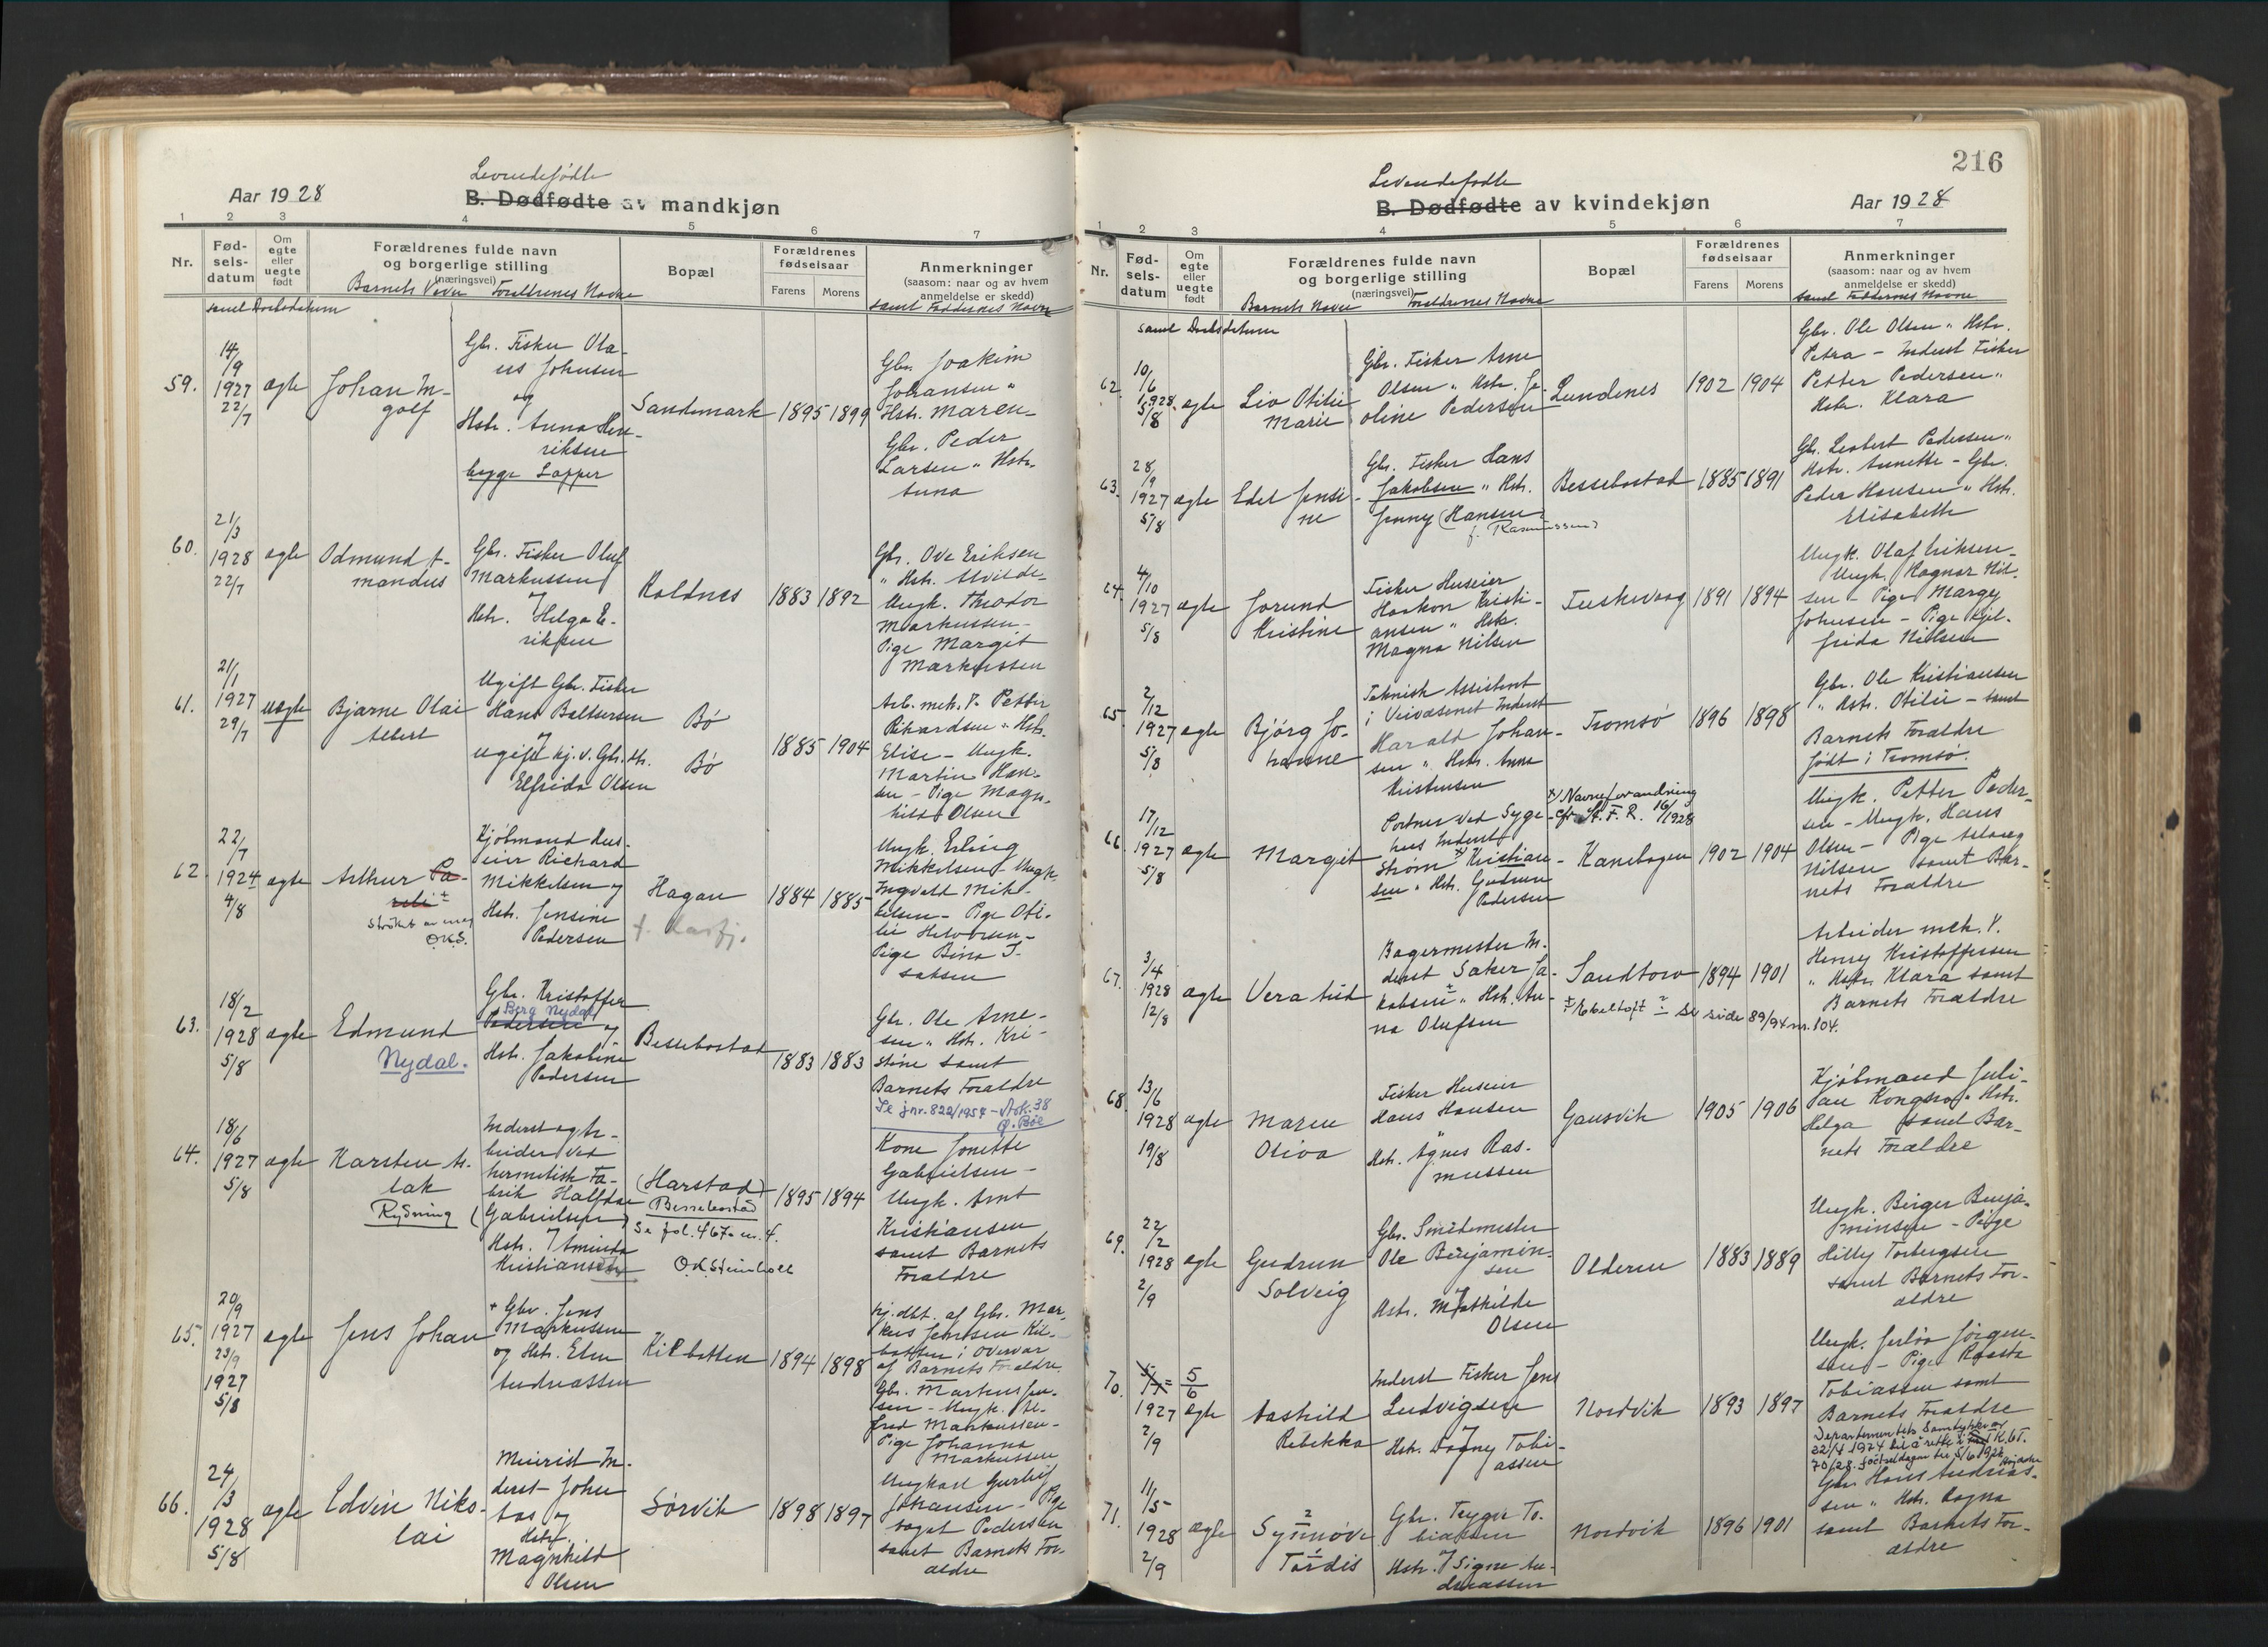 Levendefødte
Aar 1928
B. Dødfødte av mandkjøn
1 2 3 4 5 6 7
Nr.
Fød-
sels-
datum
Om
egte
eller
uegte
født
Forældrenes fulde navn
og borgerlige stilling
(næringsvei)
Barnets Navn Forældrenes Navne
Bopæl
Forældrenes
fødselsaar
Farens Morens
Anmerkninger
(saasom: naar og av hvem
anmeldelse er skedd)
samt Faddernes Navne
samt Daabsdatum
59.
14/9
1927
22/7
ægte
Johan In-
golf
Gbr. Fisker Ola-
us Johnsen
og
Hstr. Anna Hen-
riksen
begge Lapper
Sandemark
1895 1899
Gbr. Joakim
Johansen "
Hstr. Maren -
Gbr. Peder
Larsen " Hstr.
Anna
60.
21/3
1928
22/7
ægte
Odmund A-
mandus
Gbr. Fisker Oluf
Markussen
og
Hstr. Helga E-
riksen
Roldnes
1883 1892
Gbr. Ove Eriksen
" Hstr. Alvilde -
Ungk. Theodor
Markussen -
Pige Margit
Markussen
61.
21/1
1927
29/7
uægte
Bjarne Olai
Albert
Ugift Gbr. Fisker
Hans Baltsersen
og
Ugift Kj. v. Gbr. dtr.
Elfrida Olsen
Bø
Bø
1885 1904
Arb. mek. V. Petter
Rikardsen " Hstr.
Elise - Ungk.
Martin Han-
sen - Pige Magn-
hild Olsen
62.
22/7
1924
4/8
ægte
Arthur
strøket av meg
O.K.S.
Kjøbmand Hus-
eier Richard
Mikkelsen og
Hstr. Jensine
Pedersen
Hagan
1884 1885
Ungk. Erling
Mikkelsen - Ungk.
Ingvald Mik-
kelsen - Pige Oti-
lie Halvorsen -
Pige Bina I-
saksen
63.
18/2
1928
5/8
ægte
Edmund
Nydal.
Gbr. Kristoffer
Berg Nydal
Pedersen og
Hstr. Jakobine
Pedersen
Bessebostad
1883 1883
Gbr. Ole Arne-
sen " Hstr. Kri-
stine samt
Barnets Forældre
Se jnr. 822/1954 - Ark. 38
64.
18/6
1927
5/8
ægte
Karsten As-
lak
Rydning
Inderst og Ar-
beider ved
hermetisk Fa-
brik Halfdan
(Gabrielsen)
og
Hstr. Aminda
Kristiansen
(Harstad)
Bessebostad
Se fol. 467a nr. 4.
O.K. Steinholt
1895 1894
Kone Jonette
Gabrielsen -
Ungk. Arnt
Kristiansen
samt Barnets
Forældre
65.
20/9
1927
23/9
1927
5/8
ægte
Jens Johan
+ Gbr. Jens
Markussen
og Hstr. Elen
Andreassen
Kilbotten
1894 1898
hj.dbt. af Gbr. Mar-
kus Jensen Kil-
botten i overvær
af Barnets Forældre.
Gbr. Martens Jen-
sen - Ungk. Al-
fred Markussen -
Pige Johanna
Markussen
66.
24/3
1928
5/8
ægte
Edvin Niko-
lai
Meierist In-
derst John
Aas og
Hstr.
Magnhild
Olsen
Sørvik
1898 1897
Ungkarl Gunleif
Johansen - Pige
Aagot Pedersen
samt Barnets For-
ældre
216
Levendefødte
B. Dødfødte av kvindekjøn
Aar 1928
1 2 3 4 5 6 7
Nr.
Fød-
sels-
datum
Om
egte
eller
uegte
født
Forældrenes fulde navn
og borgerlige stilling
(næringsvei)
Barnets Navn Forældrenes Navne
Bopæl
Forældrenes
fødselsaar
Farens Morens
Anmerkninger
(saasom: naar og av hvem
anmeldelse er skedd)
samt Faddernes Navne
samt Daabsdatum
62.
10/6
1928
5/8
ægte
Liv Otilie
Marie
Gbr. Fisker Arne
Olsen " Hstr. Ja-
oline Pedersen
Lundenes
1902 1904
Gbr. Ole Olsen " Hstr.
Petra - Inderst Fisker
Petter Pedersen "
Hstr. Klara
63.
28/9
1927
5/8
ægte
Edel Jensi-
ne
Gbr. Fisker Hans
Jakobsen " Hstr.
Jenny (Hansen)
f. Rasmussen
Bessebostad
1885 1891
Gbr. Lambert Pedersen "
Hstr. Annette - Gbr.
Peder Hansen " Hstr.
Elisabeth
64.
4/10
1927
5/8
ægte
Jorund
Kristine
Fisker Huseier
Haakon Kristi-
ansen " Hstr.
Magna Nilsen
Tuskevaag
1891 1894
Ungk. Olaf Eriksen -
Ungk. Ragnar Nil-
sen - Pige Margy
Johnsen - Pige Kjel-
frida Nilsen
65.
2/12
1927
5/8
ægte
Bjørg Jo-
hanne
Teknisk Assistent
i Veivæsenet Inderst
Harald Johan-
sen " Hstr. Anna
Kristensen
Tromsø
1896 1898
Gbr. Ole Kristiansen
" Hstr. Otilie - samt
Barnets Forældre
født i Tromsø.
66.
17/12
1927
5/8
ægte
Margit
Portner ved Syge-
hus Inderst
Strøm x) Kristian-
sen " Hstr. Gudrun
Pedersen
x) Navneforandring
cfr. St. F. R. 16/1928
Kanebogen
1902 1904
Ungk. Petter Peder-
sen - Ungk. Hans
Olsen - Pige Aslaug
Nilsen samt Bar-
nets Forældre
67.
3/4
1928
12/8
ægte
Vera Aud
Bagermester In-
derst Saker Ja-
kobsen " Hstr. An-
na Olufsen
Sandtorv
Ebeltoft Se side 89/94 nr. 104.
1894 1901
Arbeider mek. V.
Henry Kristoffersen
" Hstr. Klara samt
Barnets Forældre
68.
13/6
1928
19/8
ægte
Maren
Oliva
Fisker Huseier
Hans Hansen
og
Hstr. Agnes Ras-
mussen
Gansvik
1905 1906
Kjøbmand Juli-
an Kongsro " Hstr.
Helga samt Bar-
nets Forældre
69.
22/2
1928
2/9
ægte
Gudrun
Solveig
Gbr. Smedmester
Ole Benjamin-
sen
og
Hstr. Mathilde
Olsen
Olderen
1883 1889
Ungk. Birger Benja-
minsen - Pige
Hilly Torbergsen
samt Barnets For-
ældre
70.
5/6
1927
2/9
ægte
Aashild
Rebekka
Inderst Fisker Jens
Ludvigsen
og
Hstr. Dagny Tobi-
assen
Nordvik
1893 1897
Ungk. Jørgen-
sen - Pige Raasta
Tobiassen samt
Barnets Forældre
Departementets Samtykke av
22/4 1974 til å rette i K.bT.
70/28. fødselsdagen til 5/6 1927
71.
11/5
1928
2/9
ægte
Synnøve
Tordis
Gbr. Trygve To-
biassen
og
Hstr. Signe An-
dreassen
Nordvik
1896 1901
Gbr. Hans Andreas-
sen " Hstr. Dagna
samt Barnets For-
ældre